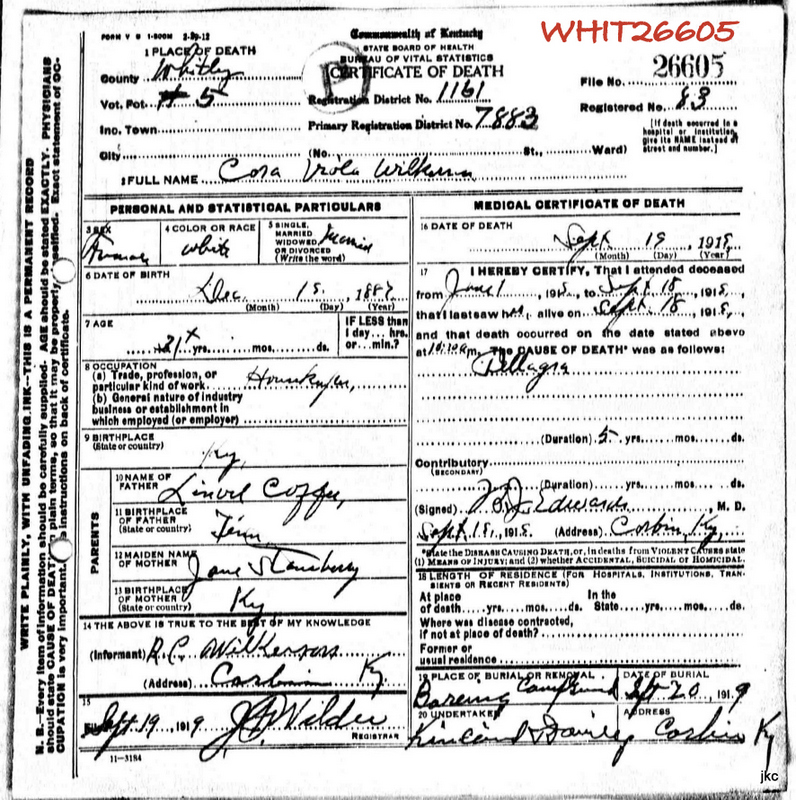 WHIT26605
FORM V S 1-500M 2-29-12
Commonwealth of Kentucky
STATE BOARD OF HEALTH
BUREAU OF VITAL STATISTICS
CERTIFICATE OF DEATH
1 PLACE OF DEATH
County Whitley
Vot. Pct. # 5
Inc. Town
City (No. St., Ward)
Registration District No. 1161
Primary Registration District No. 7883
File No. 26605
Registered No. 83
[If death occurred in a
hospital or institution,
give its NAME instead of
street and number.]
2 FULL NAME Cora Viola Wilkerson
PERSONAL AND STATISTICAL PARTICULARS
3 SEX
4 COLOR OR RACE
white
5 SINGLE,
MARRIED
WIDOWED
OR DIVORCED
(Write the word)
Married
6 DATE OF BIRTH
Dec. 15, 1887
(Month) (Day) (Year)
7 AGE
31 yrs. mos. ds.
IF LESS than
1 day... hrs.
or...min.?
8 OCCUPATION
(a) Trade, profession, or
particular kind of work
(b) General nature of industry
business or establishment in
which employed (or employer)
9 BIRTHPLACE
(State or country)
Ky,
PARENTS
10 NAME OF
FATHER
11 BIRTHPLACE
OF FATHER
(State or country)
Tenn
12 MAIDEN NAME
OF MOTHER
Jane Stansberry
13 BIRTHPLACE
OF MOTHER
(State or country)
Ky
14 THE ABOVE IS TRUE TO THE BEST OF MY KNOWLEDGE
(Informant) R.C. Wilkerson
(Address) Corbin Ky
15
Filed Sept 19, 1919 Wilder
REGISTRAR
11-3184
MEDICAL CERTIFICATE OF DEATH
16 DATE OF DEATH
Sept 19, 1918
(Month) (Day) (Year)
17 I HEREBY CERTIFY, That I attended deceased
from June 1, 1918, to Sept 18, 1918,
that I last saw her alive on Sept. 18, 1918,
and that death occurred on the date stated above
at m. The CAUSE OF DEATH* was as follows:
Pellagra
(Duration) 5 yrs. mos. ds.
Contributory
(SECONDARY)
(Duration) yrs. mos. ds.
(Signed) Edwards, M. D.
Sept 18, 1918 (Address) Corbin, Ky,
*State the DISEASE CAUSING DEATH, or, in deaths from VIOLENT CAUSES state
(1) MEANS OF INJURY; and (2) whether ACCIDENTAL, SUICIDAL or HOMICIDAL.
18 LENGTH OF RESIDENCE (FOR HOSPITALS, INSTITUTIONS, TRAN-
SIENTS OR RECENT RESIDENTS)
At place
of death yrs. mos. ds.
In the
State yrs. mos. ds.
Where was disease contracted,
if not at place of death?
Former or
usual residence
19 PLACE OF BURIAL OR REMOVAL
DATE OF BURIAL
Sept 20, 1919
20 UNDERTAKER
ADDRESS
Corbin Ky
WRITE PLAINLY, WITH UNFADING INK--THIS IS A PERMANENT RECORD
N. B.--Every item of information should be carefully supplied. AGE should be stated EXACTLY. PHYSICIANS
should state CAUSE OF DEATH in plain terms, so that it may be properly classified. Exact statement of OC-
CUPATION is very important. instructions on back of certificate.
jkc